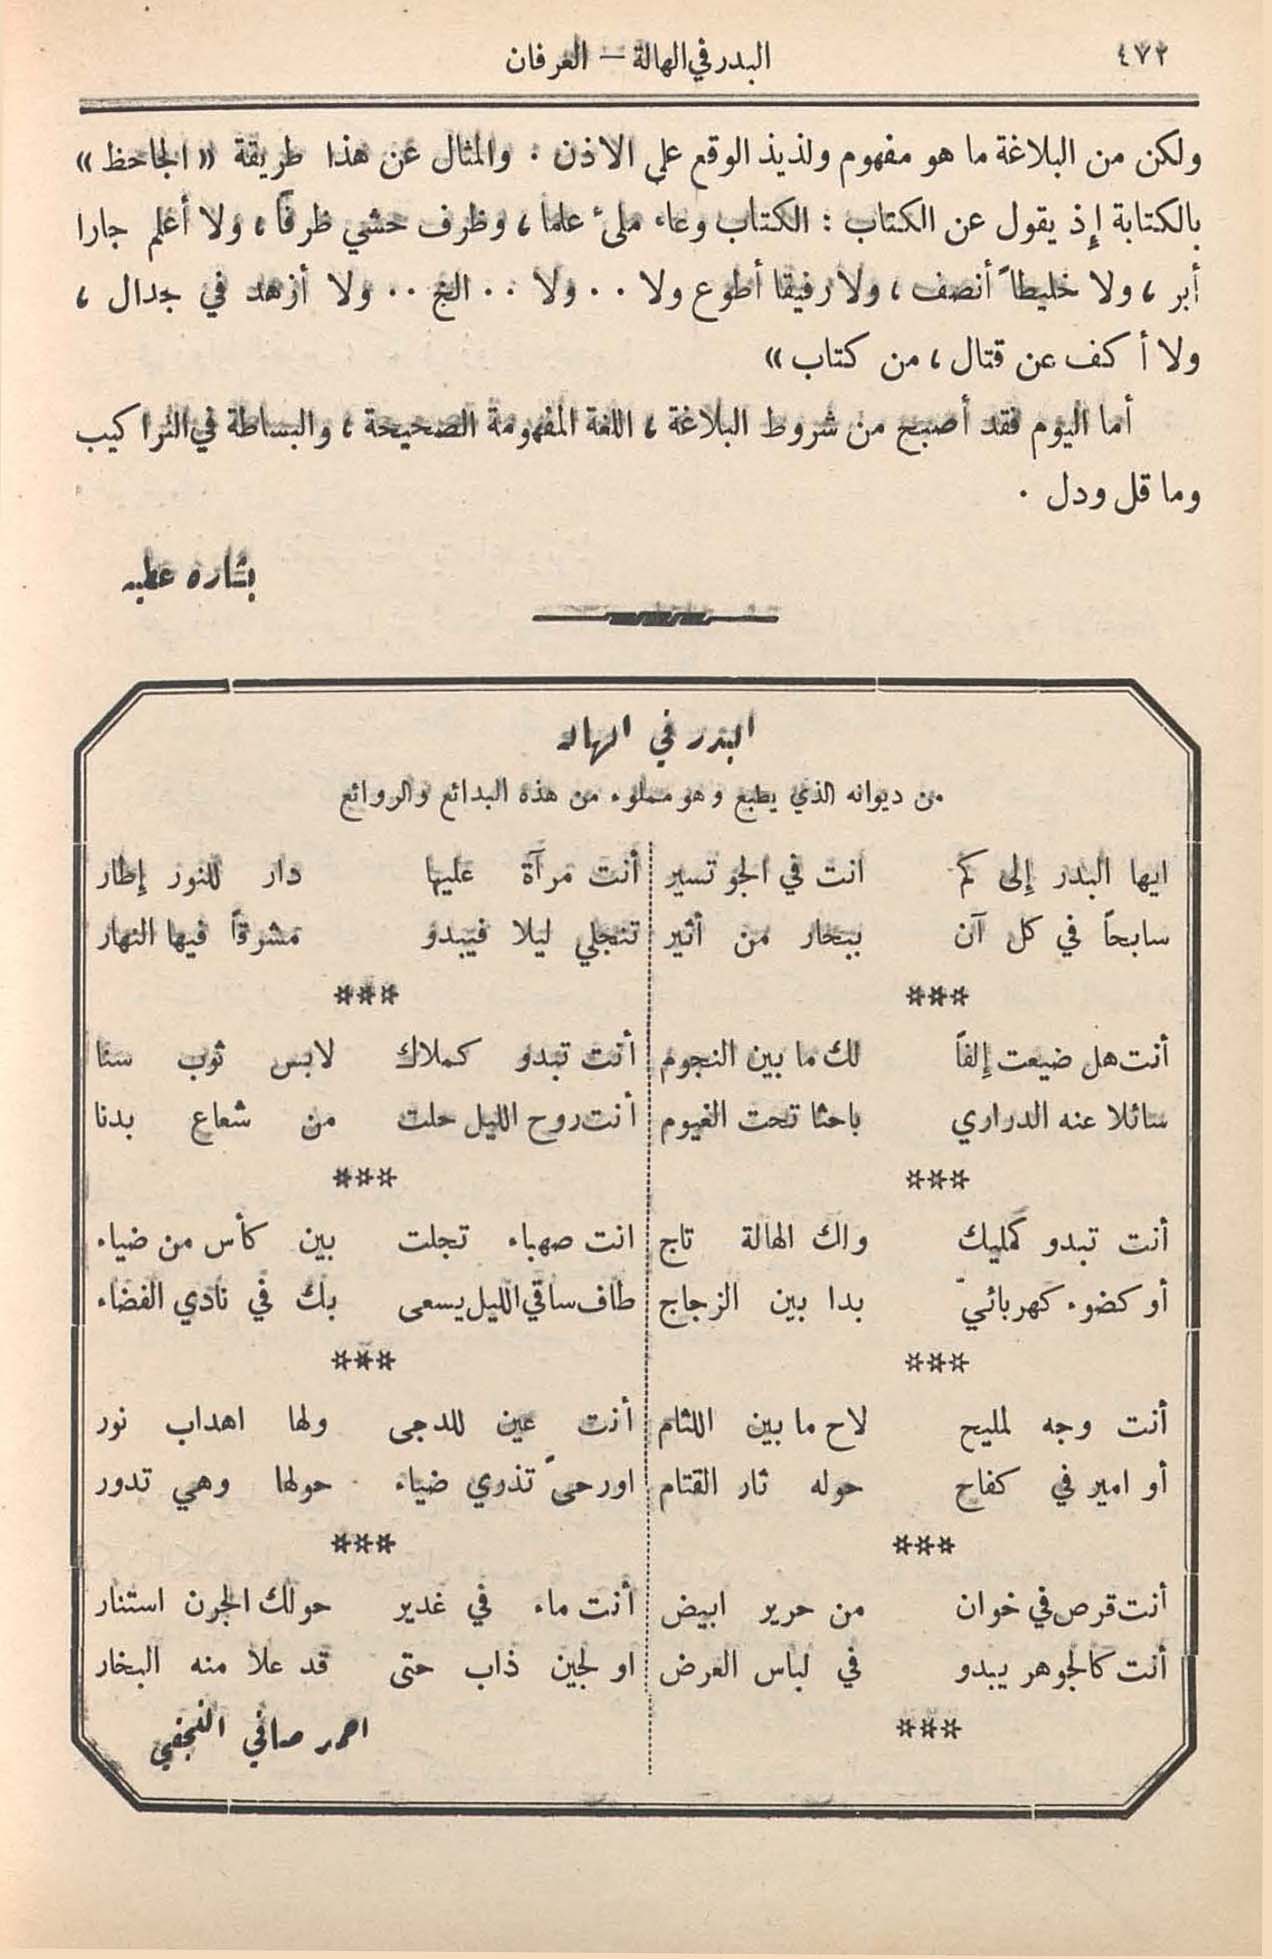 ٤٧٢
البدر في الهالة — العرفان
ولكن من البلاغة ما هو مفهوم ولذيذ الوقع على الاذن . والمثال عن هذا طريقة « الجاحظ »
بالكتابة إِذ يقول عن الكتاب : الكتاب وعاء ملئ علما ، وظرف حشي ظرفاً ، ولا أعلم جارا
أبر ، ولا خليطاً أنصف ، ولا رفيقا أطوع ولا . . ولا . . الخ . . ولا أزهد في جدال ،
ولا أكف عن قتال ، من كتاب »
أما اليوم فقد أصبح من شروط البلاغة ، اللغة المفهومة الصحيحة ، والبساطة في التراكيب
وما قل ودل .
بشاره عطيه
البدر في الهاله
من ديوانه الذي يطبع وهو مملوء من هذه البدائع والروائع
ايها البدر إِلى كم انت في الجو تسير
سابحاً في كل آن ببحار من أثير
***
أنت هل ضيعت إِلفاً لك ما بين النجوم
سائلا عنه الدراري باحثا تحت الغيوم
***
أنت تبدو كمليك ولك الهالة تاج
أو كضوء كهربائيّ بدا بين الزجاج
***
أنت وجه لمليح لاح ما بين اللثام
أو امير في كفاح حوله ثار القتام
***
أنت قرص في خوان من حرير ابيض
أنت كالجوهر يبدو في لباس العرض
***
أنت مرآة عليها دار للنور إِطار
تنجلي ليلا فيبدو مشرقاً فيها النهار
***
أنت تبدو كملاك لابس ثوب سنا
أنت روح الليل حلت من شعاع بدنا
***
انت صهباء تجلت بين كأس من ضياء
طاف ساقي الليل يسعى بك في نادي الفضاء
***
أنت عين للدجى ولها اهداب نور
او رحىً تذري ضياء حولها وهي تدور
***
أنت ماء في غدير حولك الجرن استنار
او لجين ذاب حتى قد علا منه البخار
احمد صافي النجفي